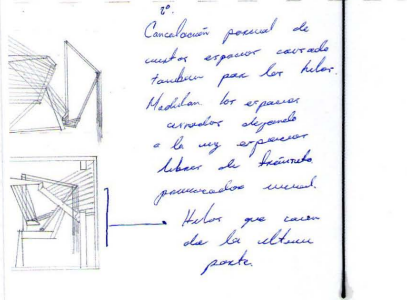 2º.
Cancelación parcial de
ciertos espacios
tambien por los hilos.
Modulan los espacios
cerrados dejando
a la vez espacios
libres de tránsito
visual.
Hilos que caen
de la ultima
parte.